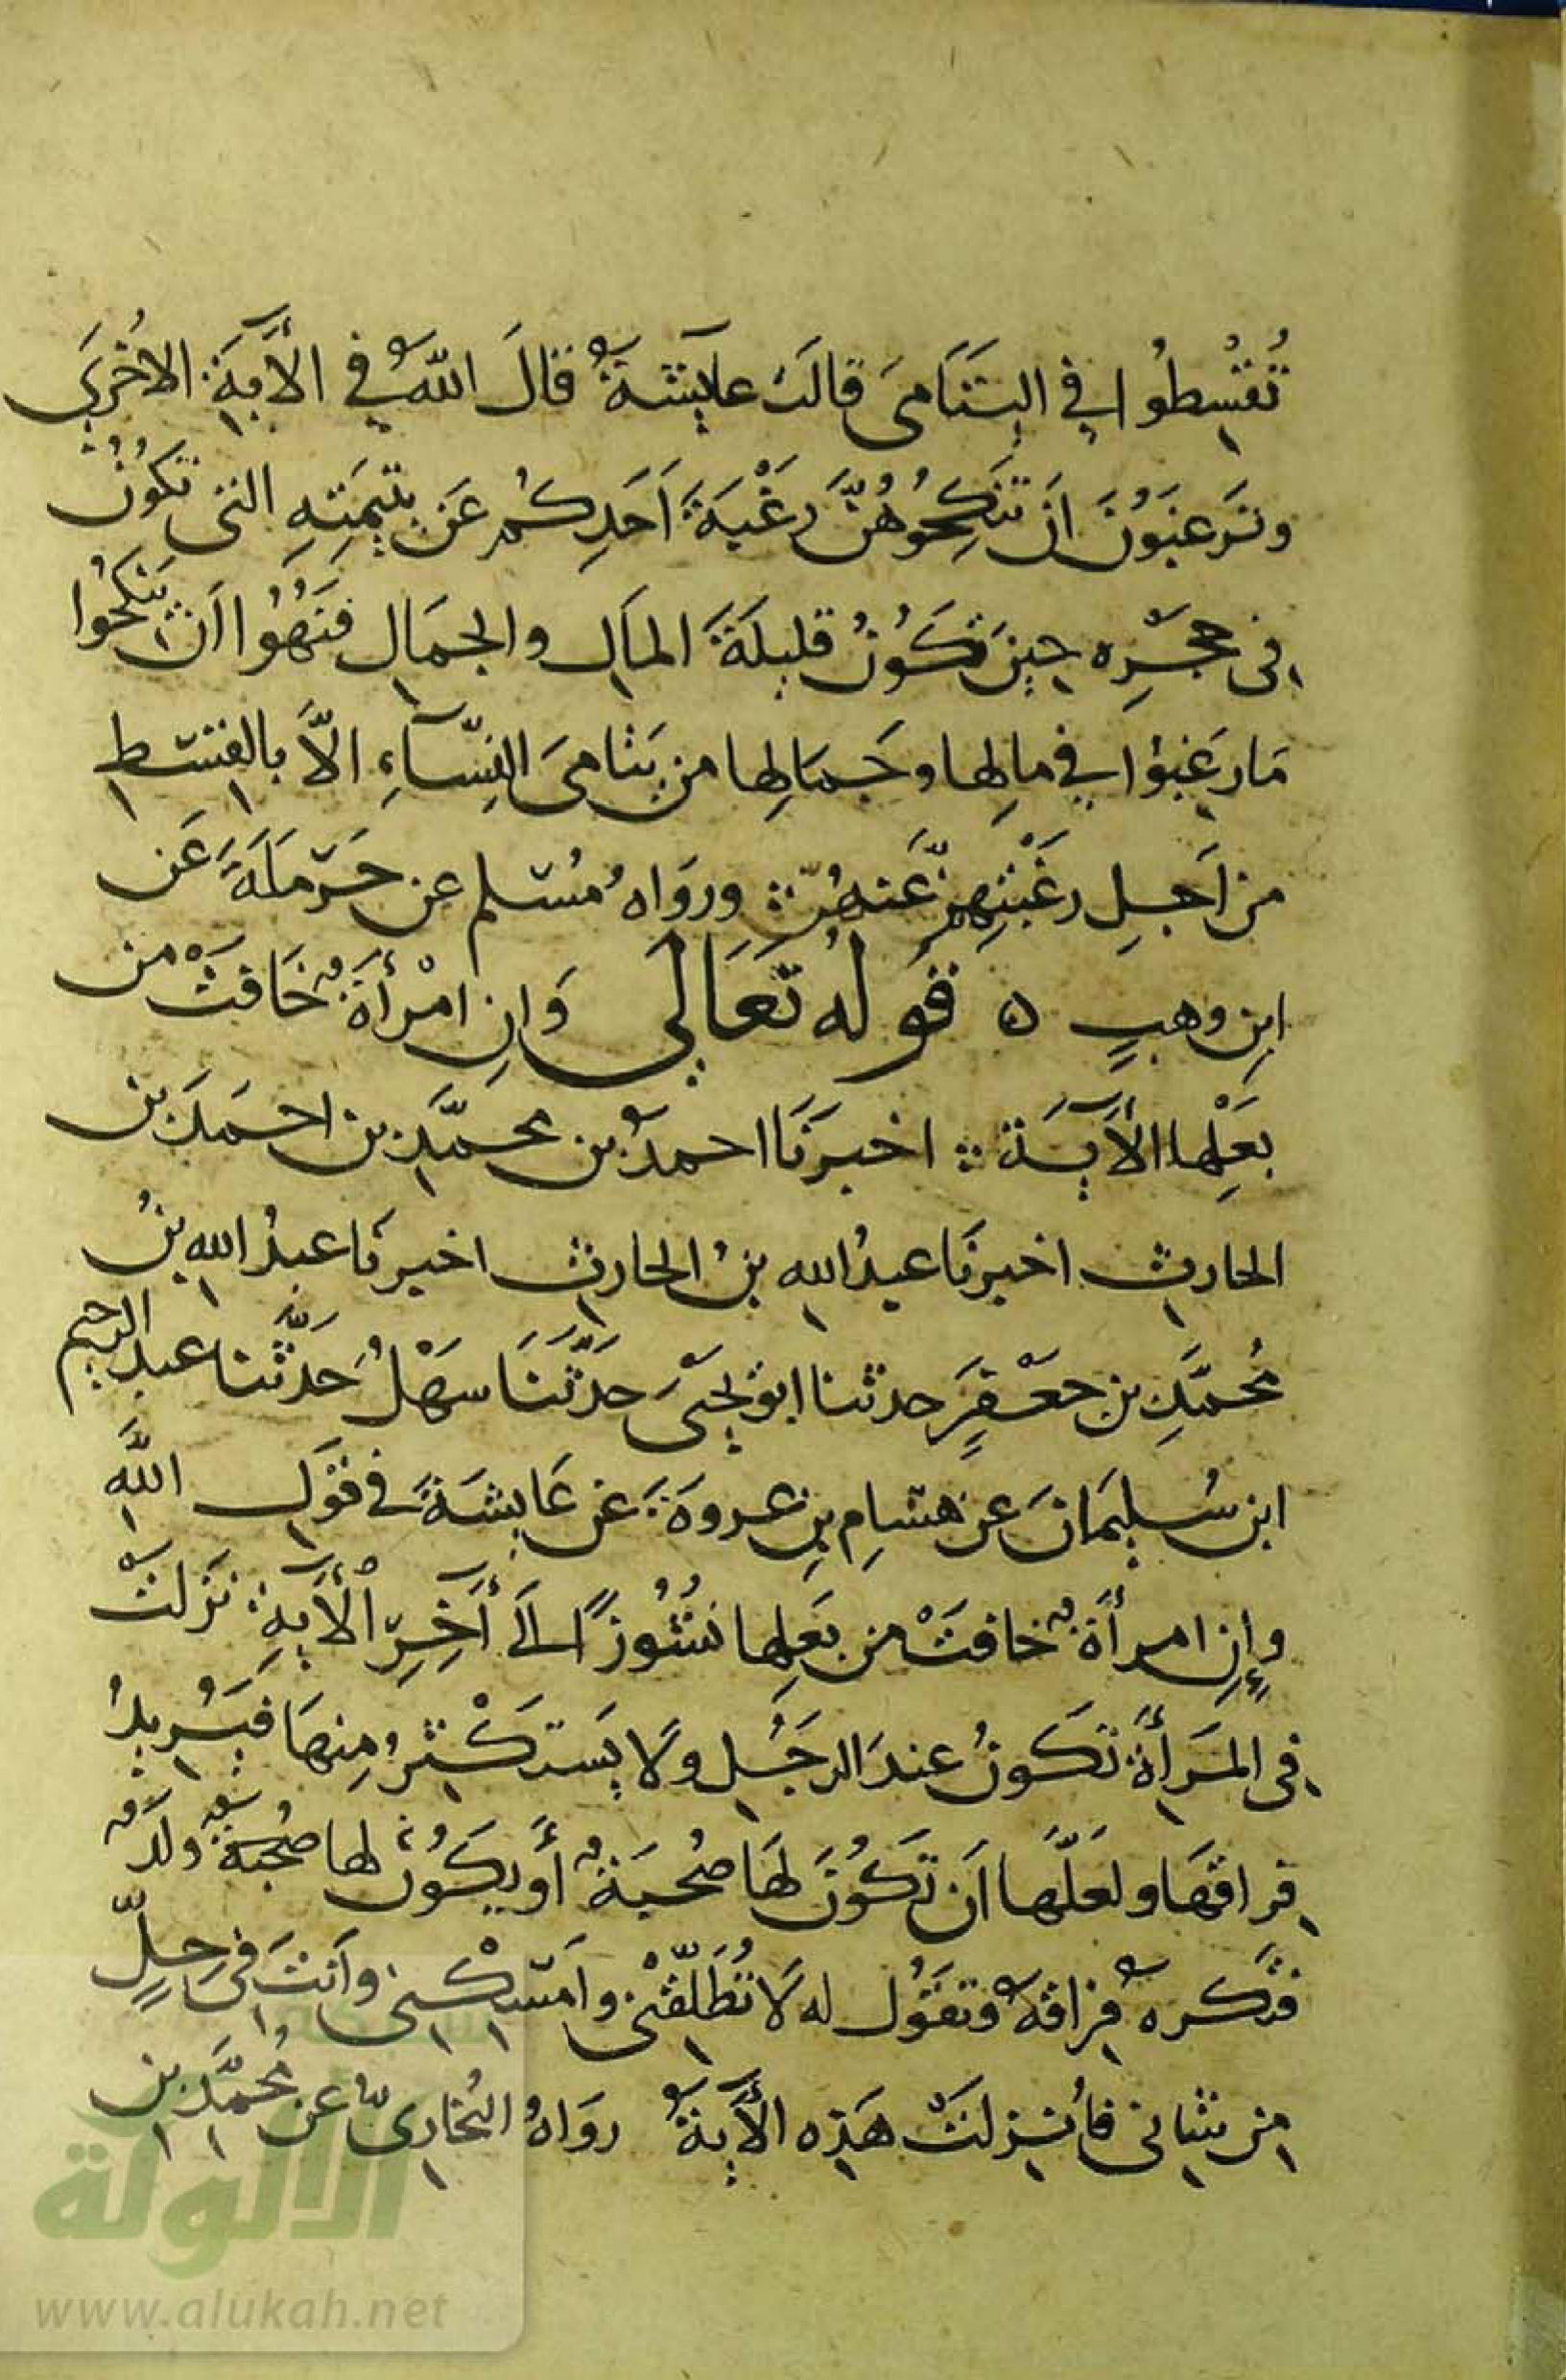 تُقْسِطُوا في اليَتَامىَ قالَت عايِشةُ قالَ اللهُ في الأيَةِ الاخْرَي
وتَرغَبَوُنَ اَن تَنكِحُوُهُنَّ رغْبَةَ اَحَدِكُم عَن يتِيمَتِهِ التي تَكُوُنُ
في حِجْرِه حِينَ تَكُونُ قليلَةَ المالِ والجمَالِ فنُهُوا اَن يَنكحُوا
مَا رغِبوُا في مالِها وجَمالِها من يَتامىَ النِسّآءِ الاَّ بالقِسْطِ
من اَجلِ رغْبَتِهِم عَنهُنّ ورَواهُ مُسْلم عن حَرْمَلَةَ عَن
ابنِ وهبٍ ه قوله تعَالَى وَانِ امْرأةٌ خَافَتْ من
بَعْلِها الأيَة اخبرَنَا احمدُ بن محمَّدِ بن احمَدَ بن
الحارثِ اخبرنَا عبدُ اللهِ بنُ الحارثِ اخبرنَا عبدُ اللهِ بنُ
مُحمَّدِ بنِ جعْفَرٍ حدثنا ابوُ يحيَى حَدَّثَنَا سَهْلُ حَدَّثنا عبد الرحيم
ابن سُليمَانَ عن هشامِ بنِ عروةَ عَن عَايشَةَ في قوْلِ اللهِ
وإنِ امرأةٌ خافتْ من بَعلِها نشُوُزًا الَى أخِرِ الأيةِ نزَلتْ
في المَرأةِ تكونُ عندَ الرجُلِ ولاَ يَستكْثِرُ مِنهَا فيُرِيدُ
فِراقَهَا ولعَلَّها اَن تَكُونَ لهَا صُحبَةٌ أو يكُونُ لها صُحْبَةٌ ولَدٌ
فتَكره فِراقَهُ وتقُول له لا تُطَلّقْني وامْسِكْني واَنتَ في حِلٍّ
من شاني فأُنزلتْ هذِه الأيَةُ رَواهُ البُخارىّ عن مُحمَّدِ بن
الألوكة
www.alukah.net